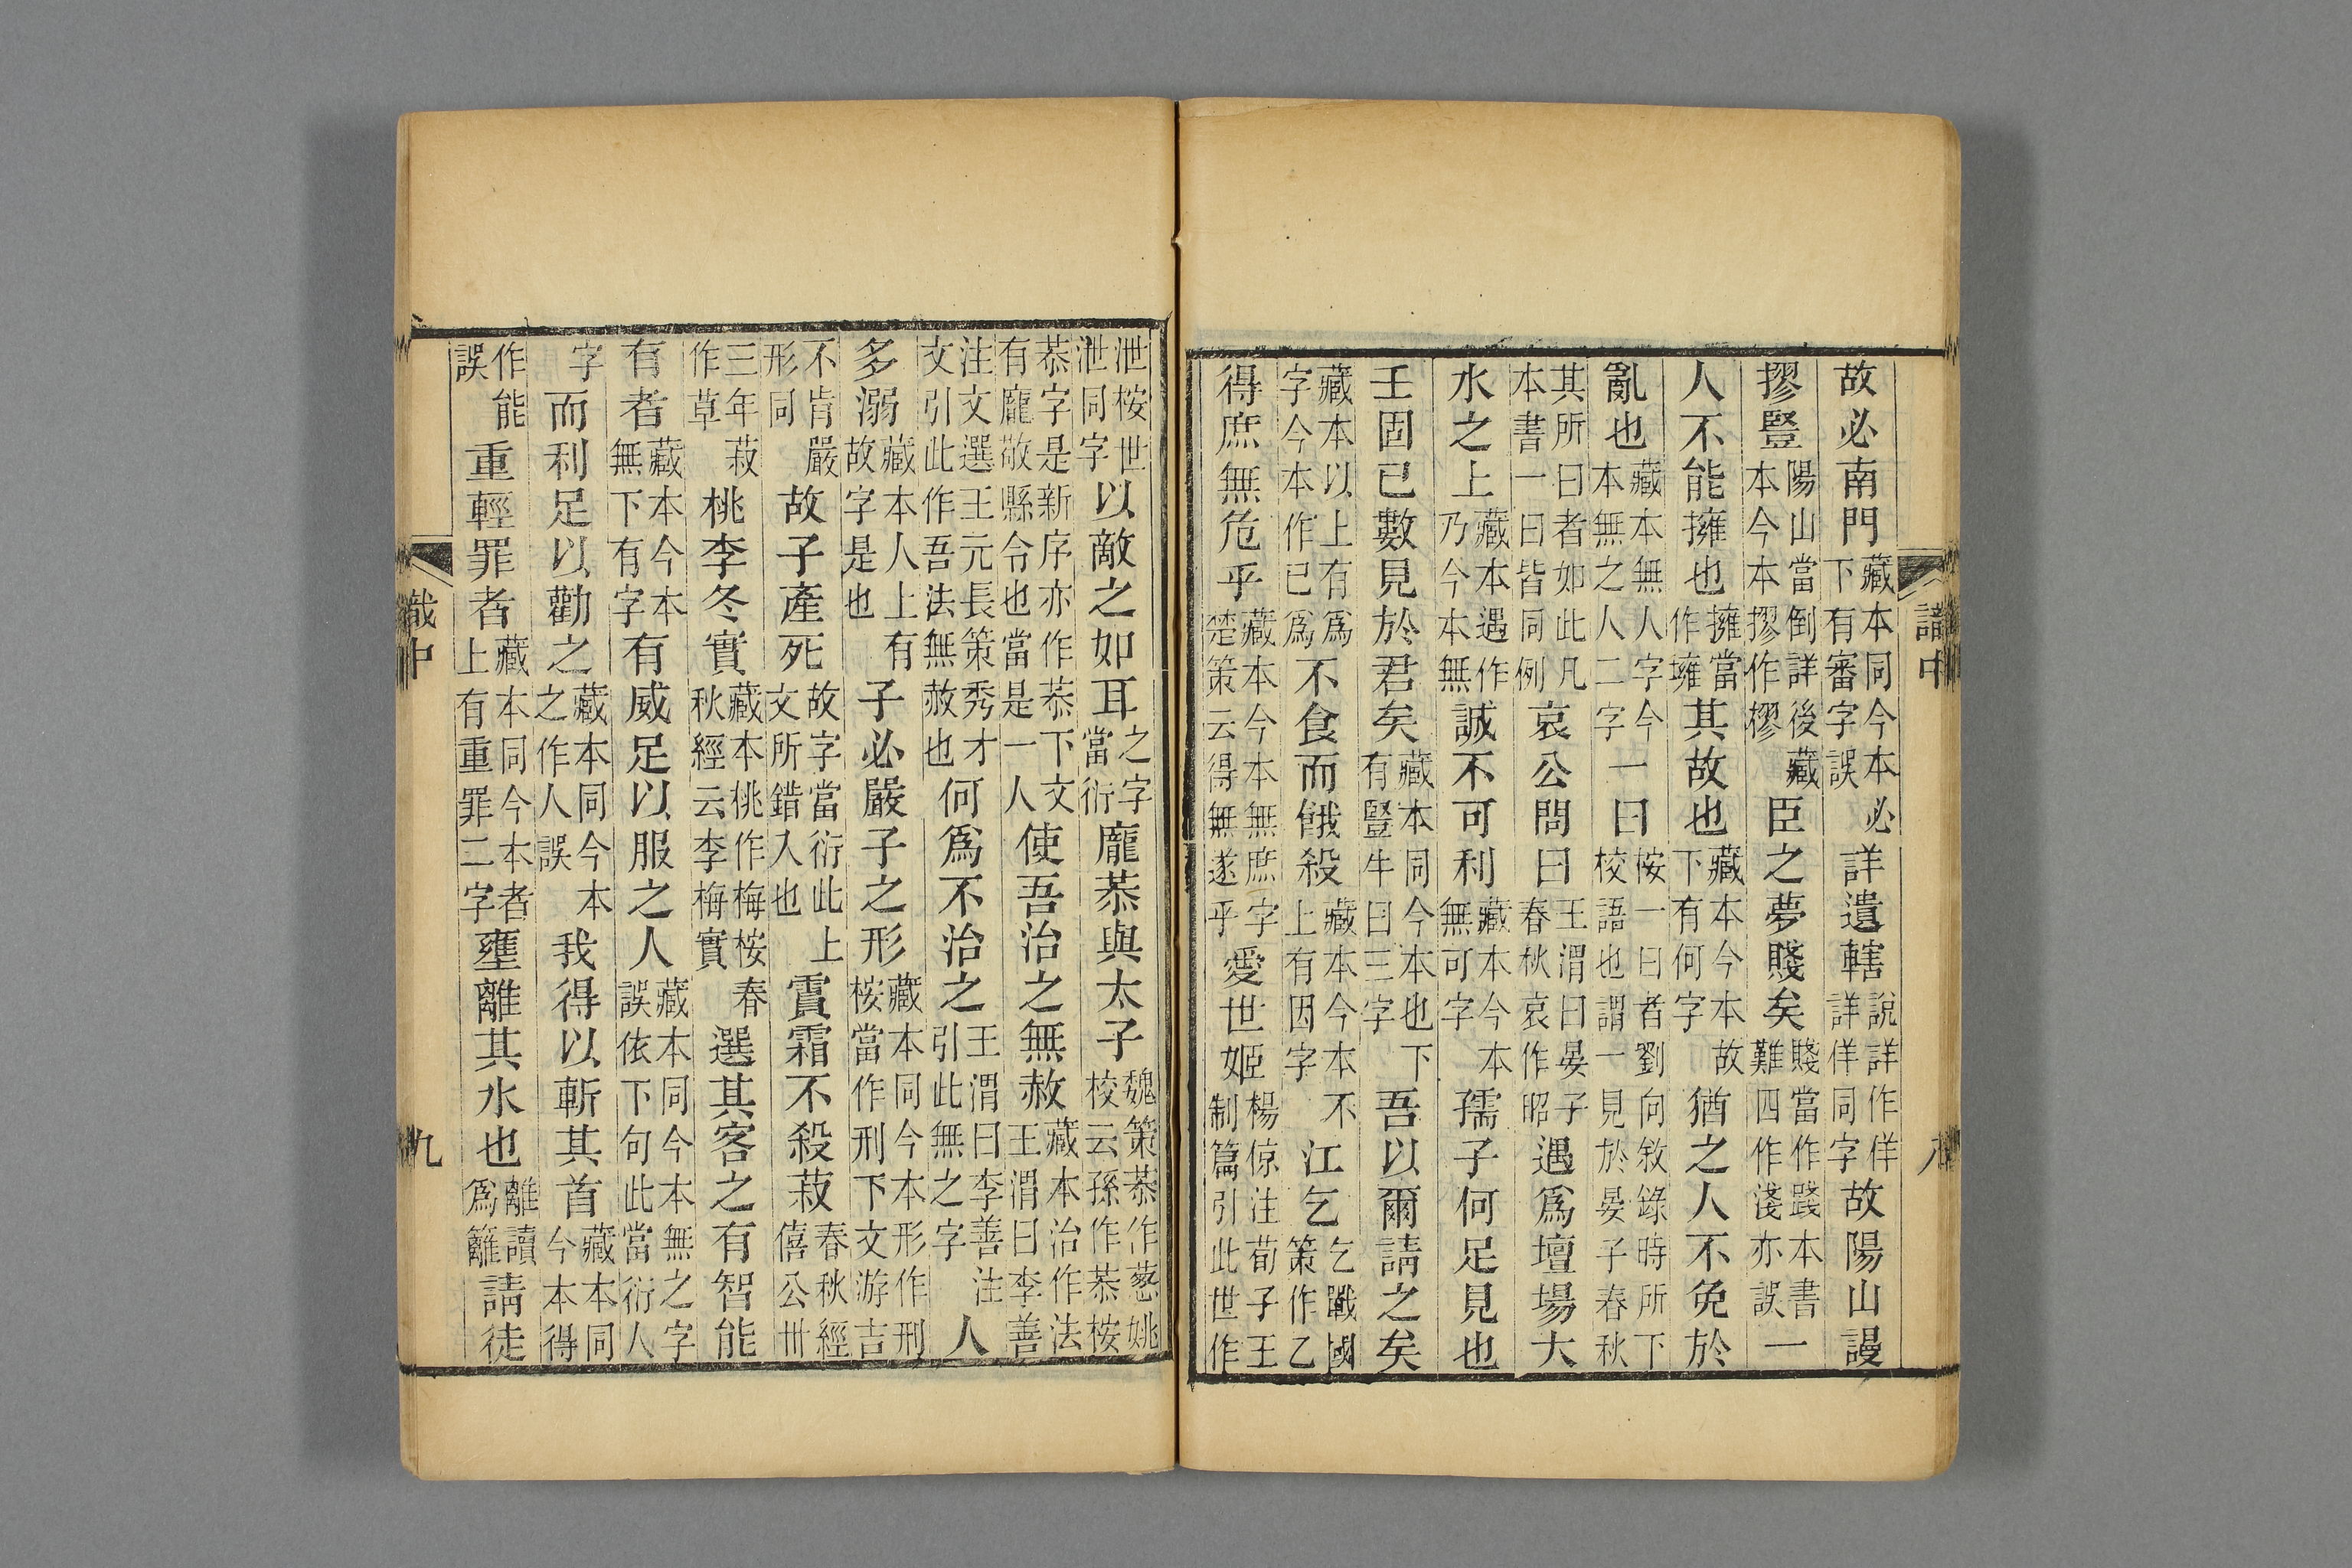 識中 八
故必南門藏本同今本必下有審字誤詳遺轄說詳作佯詳佯同字故陽山謾
摎豎陽山當倒詳後藏本今本摎作樛臣之夢賤矣賤當作踐本書難四作淺亦誤一
人不能擁也擁當作壅其故也藏本今本故下有何字猶之人不免於
亂也藏本無人字今本無之人二字一曰桉一曰者劉向敘錄時所下校語也謂一見於晏子春秋
其所曰者如此凡本書一曰皆同例哀公問曰王渭曰晏子春秋哀作昭遇爲壇場大
水之上藏本遇作乃今本無誠不可利藏本今本無可字孺子何足見也
壬固已數見於君矣藏本同今本也下有豎牛曰三字吾以爾請之矣
藏本以上有爲字今本作已爲不食而餓殺藏本今本不上有因字江乞乞戰國策作乙
得庶無危乎藏本今本無庶字楚策云得無遂乎愛世姬楊倞注荀子王制篇引此世作
泄桉世泄同字以敵之如耳之字當衍龐恭與太子魏策恭作蔥姚校云孫作恭桉
恭字是新序亦作恭下文有龐敬縣令也當是一人使吾治之無赦藏本治作法王渭曰李善
注文選王元長策秀才文引此作吾法無赦也何爲不治之王渭曰李善注引此無之字人
多溺藏本人上有故字是也子必嚴子之形藏本同今本形作刑桉當作刑下文游吉
不肯嚴形同故子產死故字當衍此上文所錯入也霣霜不殺菽春秋經僖公卅
三年菽作草桃李冬實藏本桃作梅桉春秋經云李梅實選其客之有智能
有者藏本今本無下有字有威足以服之人藏本同今本無之字誤依下句此當衍人
字而利足以勸之藏本同今本之作人誤我得以斬其首藏本同今本得
作能誤重輕罪者藏本同今本者上有重罪二字壅離其水也離讀爲籬請徒
識中 九